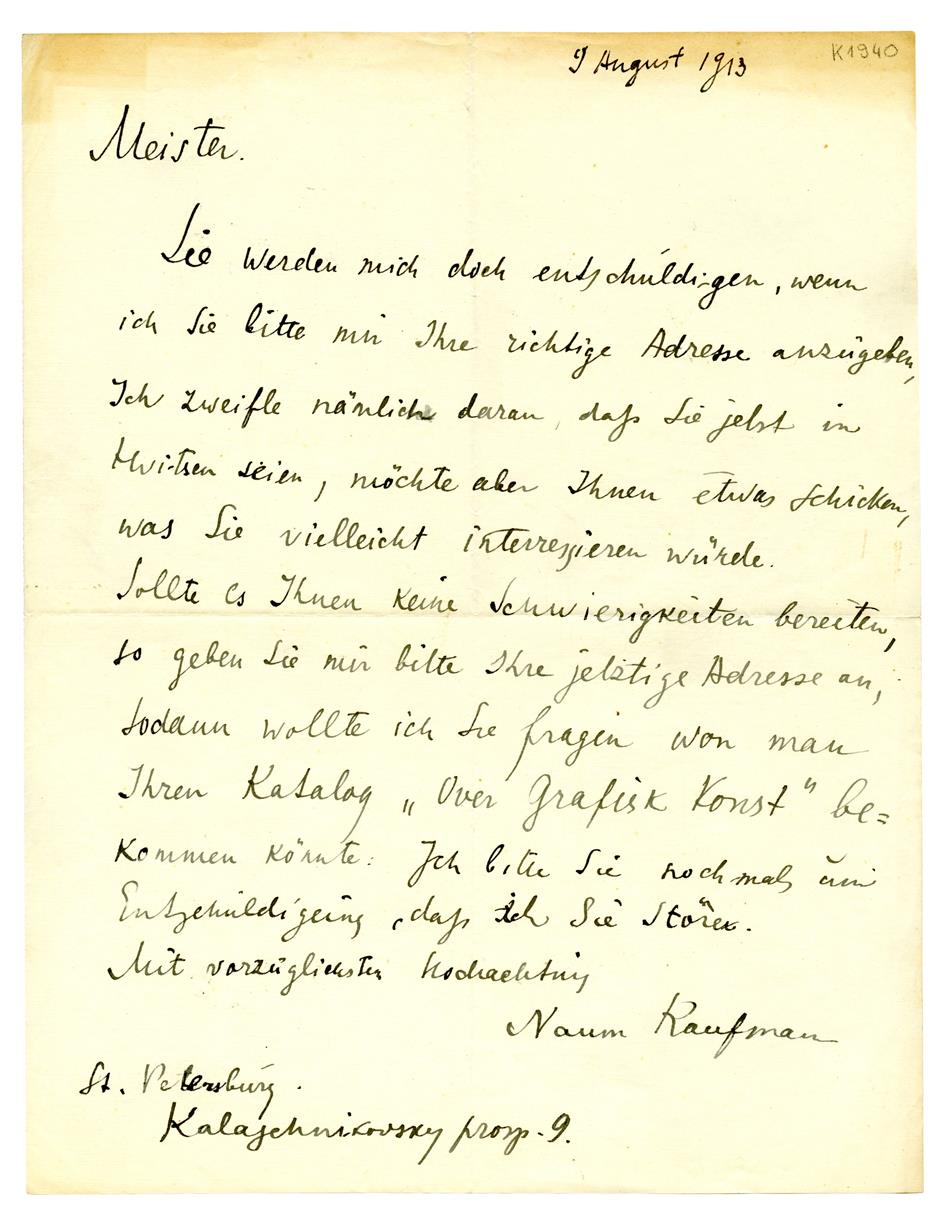 9 August 1913
K1940
Meister.
Sie werden mich doch entschuldigen, wenn
ich Sie bitte mir Ihre richtige Adresse anzugeben,
Ich zweifle nämlich daran, daß Sie jetzt in
Hvitsen seien, möchte aber Ihnen etwas schicken,
was Sie vielleicht interressieren würde.
Sollte es Ihnen keine Schwierigkeiten bereiten,
so geben Sie mir bitte Ihre jetztige Adresse an,
sodann wollte ich Sie fragen won man
Ihren Katalog „Over Grafisk Konst" be=
kommen könnte. Ich bitte Sie nochmals um
Entschuldigung, daß ich Sie störe.
Mit vorzüglichster Hochachtung
Naum Kaufman
St. Petersburg.
Kalaschnikovsky prosp. 9.